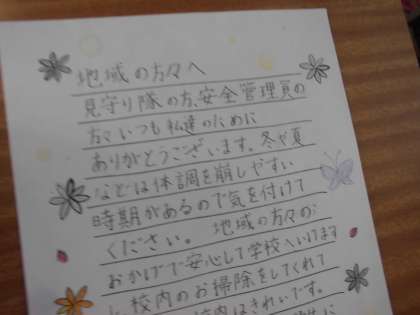 地域の方々へ
見守り隊の方、安全管理員の
方々いつも私達のために
ありがとうございます。冬や夏
などは体調を崩しやすい
時期があるので気を付けて
ください。 地域の方々の
おかげで安心して学校へいけます
校内のお掃除をしてくれて
校内はきれいです。